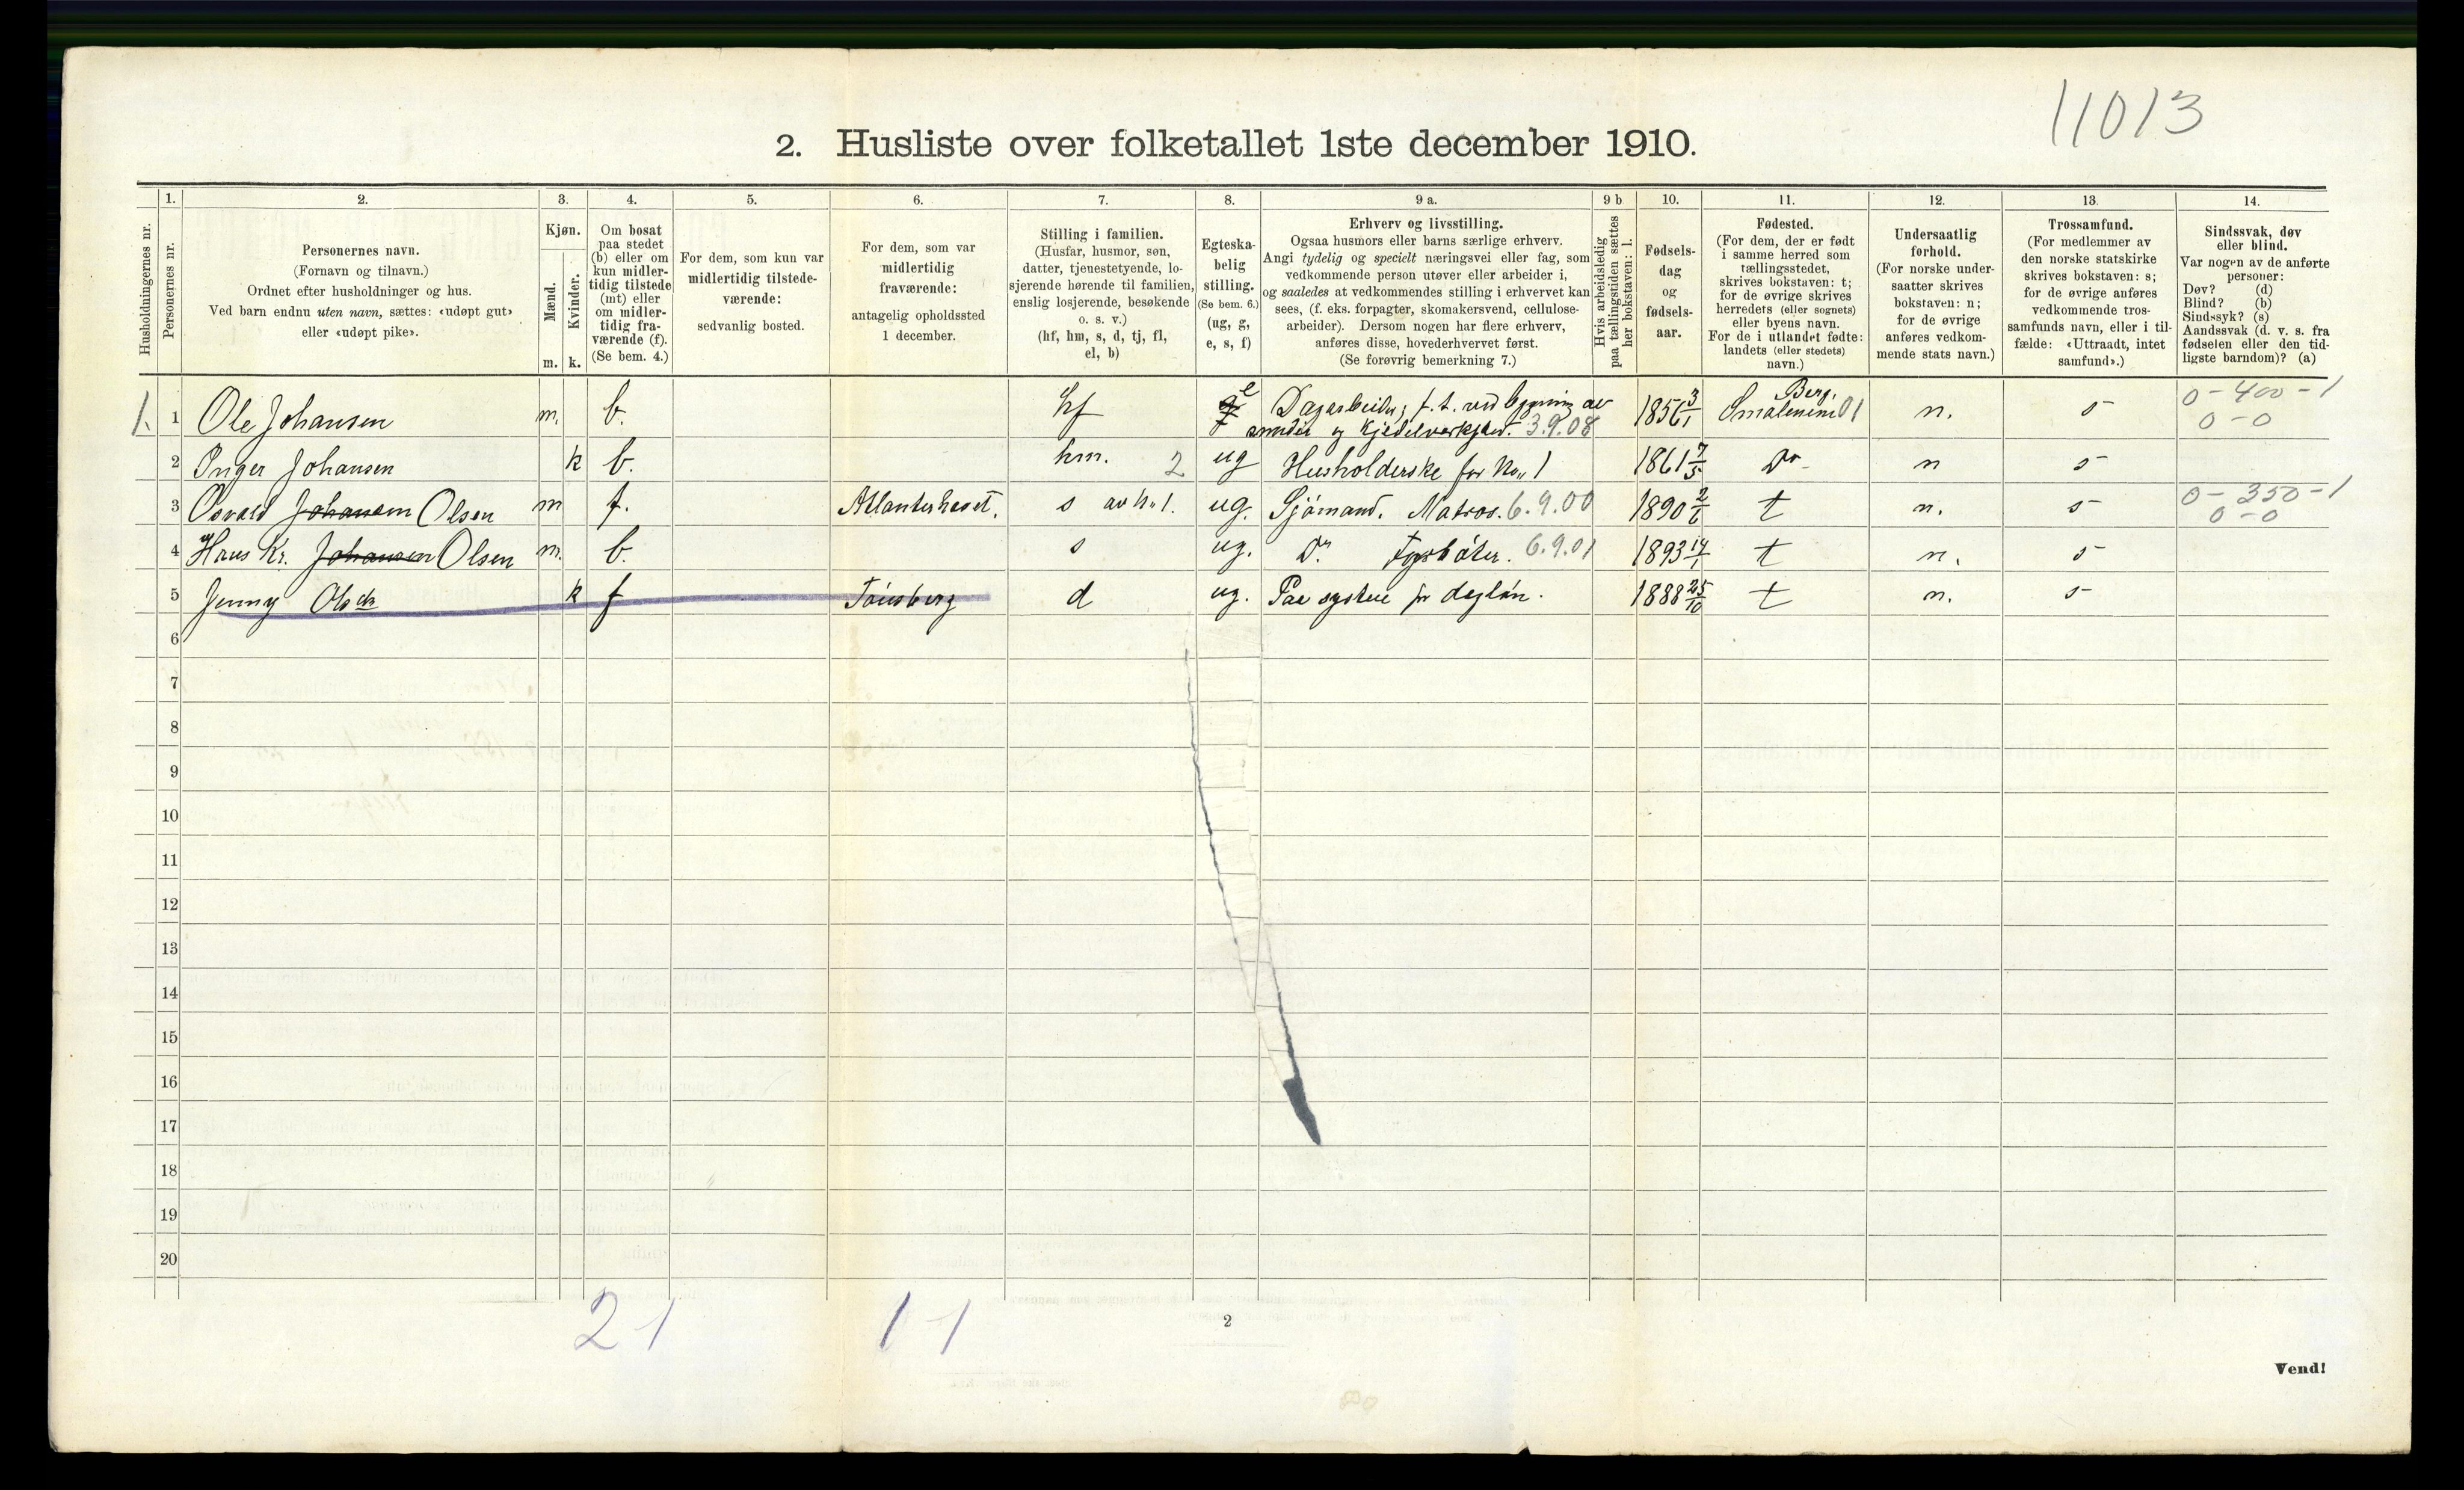 11013
2. Husliste over folketallet 1ste december 1910.
Husholdningernes nr.
1.
Personernes nr.
2.
Personernes navn.
(Fornavn og tilnavn.)
Ordnet efter husholdninger og hus.
Ved barn endnu uten navn, sættes: «udøpt gut»
eller «udøpt pike».
3.
Kjøn.
Mænd.
Kvinder.
m. k.
4.
Om bosat
paa stedet
(b) eller om
kun midler-
tidig tilstede
(mt) eller
om midler-
tidig fra-
værende (f).
(Se bem. 4.)
5.
For dem, som kun var
midlertidig tilstede-
værende:
sedvanlig bosted.
6.
For dem, som var
midlertidig
fraværende:
antagelig opholdssted
1 december.
7.
Stilling i familien.
(Husfar, husmor, søn,
datter, tjenestetyende, lo-
sjerende hørende til familien,
enslig losjerende, besøkende
o. s. v.)
(hf, hm, s, d, tj, fl,
el, b)
8.
Egteska-
belig
stilling.
(Se bem. 6.)
(ug, g,
e, s, f)
9 a.
Erhverv og livsstilling.
Ogsaa husmors eller barns særlige erhverv.
Angi tydelig og specielt næringsvei eller fag, som
vedkommende person utøver eller arbeider i,
og saaledes at vedkommendes stilling i erhvervet kan
sees, (f. eks. forpagter, skomakersvend, cellulose-
arbeider). Dersom nogen har flere erhverv,
anføres disse, hovederhvervet først.
(Se forøvrig bemerkning 7.)
9 b
Hvis arbeidsledig
paa tællingstiden sættes
her bokstaven: l.
10.
Fødsels-
dag
og
fødsels-
aar.
11.
Fødested.
(For dem, der er født
i samme herred som
tællingsstedet,
skrives bokstaven: t;
for de øvrige skrives
herredets (eller sognets)
eller byens navn.
For de i utlandet fødte:
landets (eller stedets)
navn.)
12.
Undersaatlig
forhold.
(For norske under-
saatter skrives
bokstaven: n;
for de øvrige
anføres vedkom-
mende stats navn.)
13.
Trossamfund.
(For medlemmer av
den norske statskirke
skrives bokstaven: s;
for de øvrige anføres
vedkommende tros-
samfunds navn, eller i til-
fælde: «Uttraadt, intet
samfund».)
14.
Sindssvak, døv
eller blind.
Var nogen av de anførte
personer:
Døv? (d)
Blind? (b)
Sindssyk? (s)
Aandssvak (d. v. s. fra
fødselen eller den tid-
ligste barndom)? (a)
1. 1 Ole Johansen m. b. hf e Dagarbeider, f. t. ved bygning av smedie og Kjedelverksted. 3.9.08 1856 3/1 Berg, Smalenene 01 n. s 0-400-1 0-0
2 Inger Johansen k b. hm. 2 ug Husholderske for No 1 1861 7/5 Do n s
3 Osvald Johansen Olsen m f. Atlanterhavet. s av No 1. ug. Sjømand. Matros. 6.9.00 1890 2/6 t n. s 0-350-1 0-0
4 Hans Kr. Johansen Olsen m. b. s ug. Do Fyrbøter. 6.9.01 1893 14/1 t n. s
5 Jenny k f Tønsberg d ug. Paa systue for dagløn. 1888 25/10 t n. s
6
7
8
9
10
11
12
13
14
15
16
17
18
19
20
2 1 1 1
2
Vend!